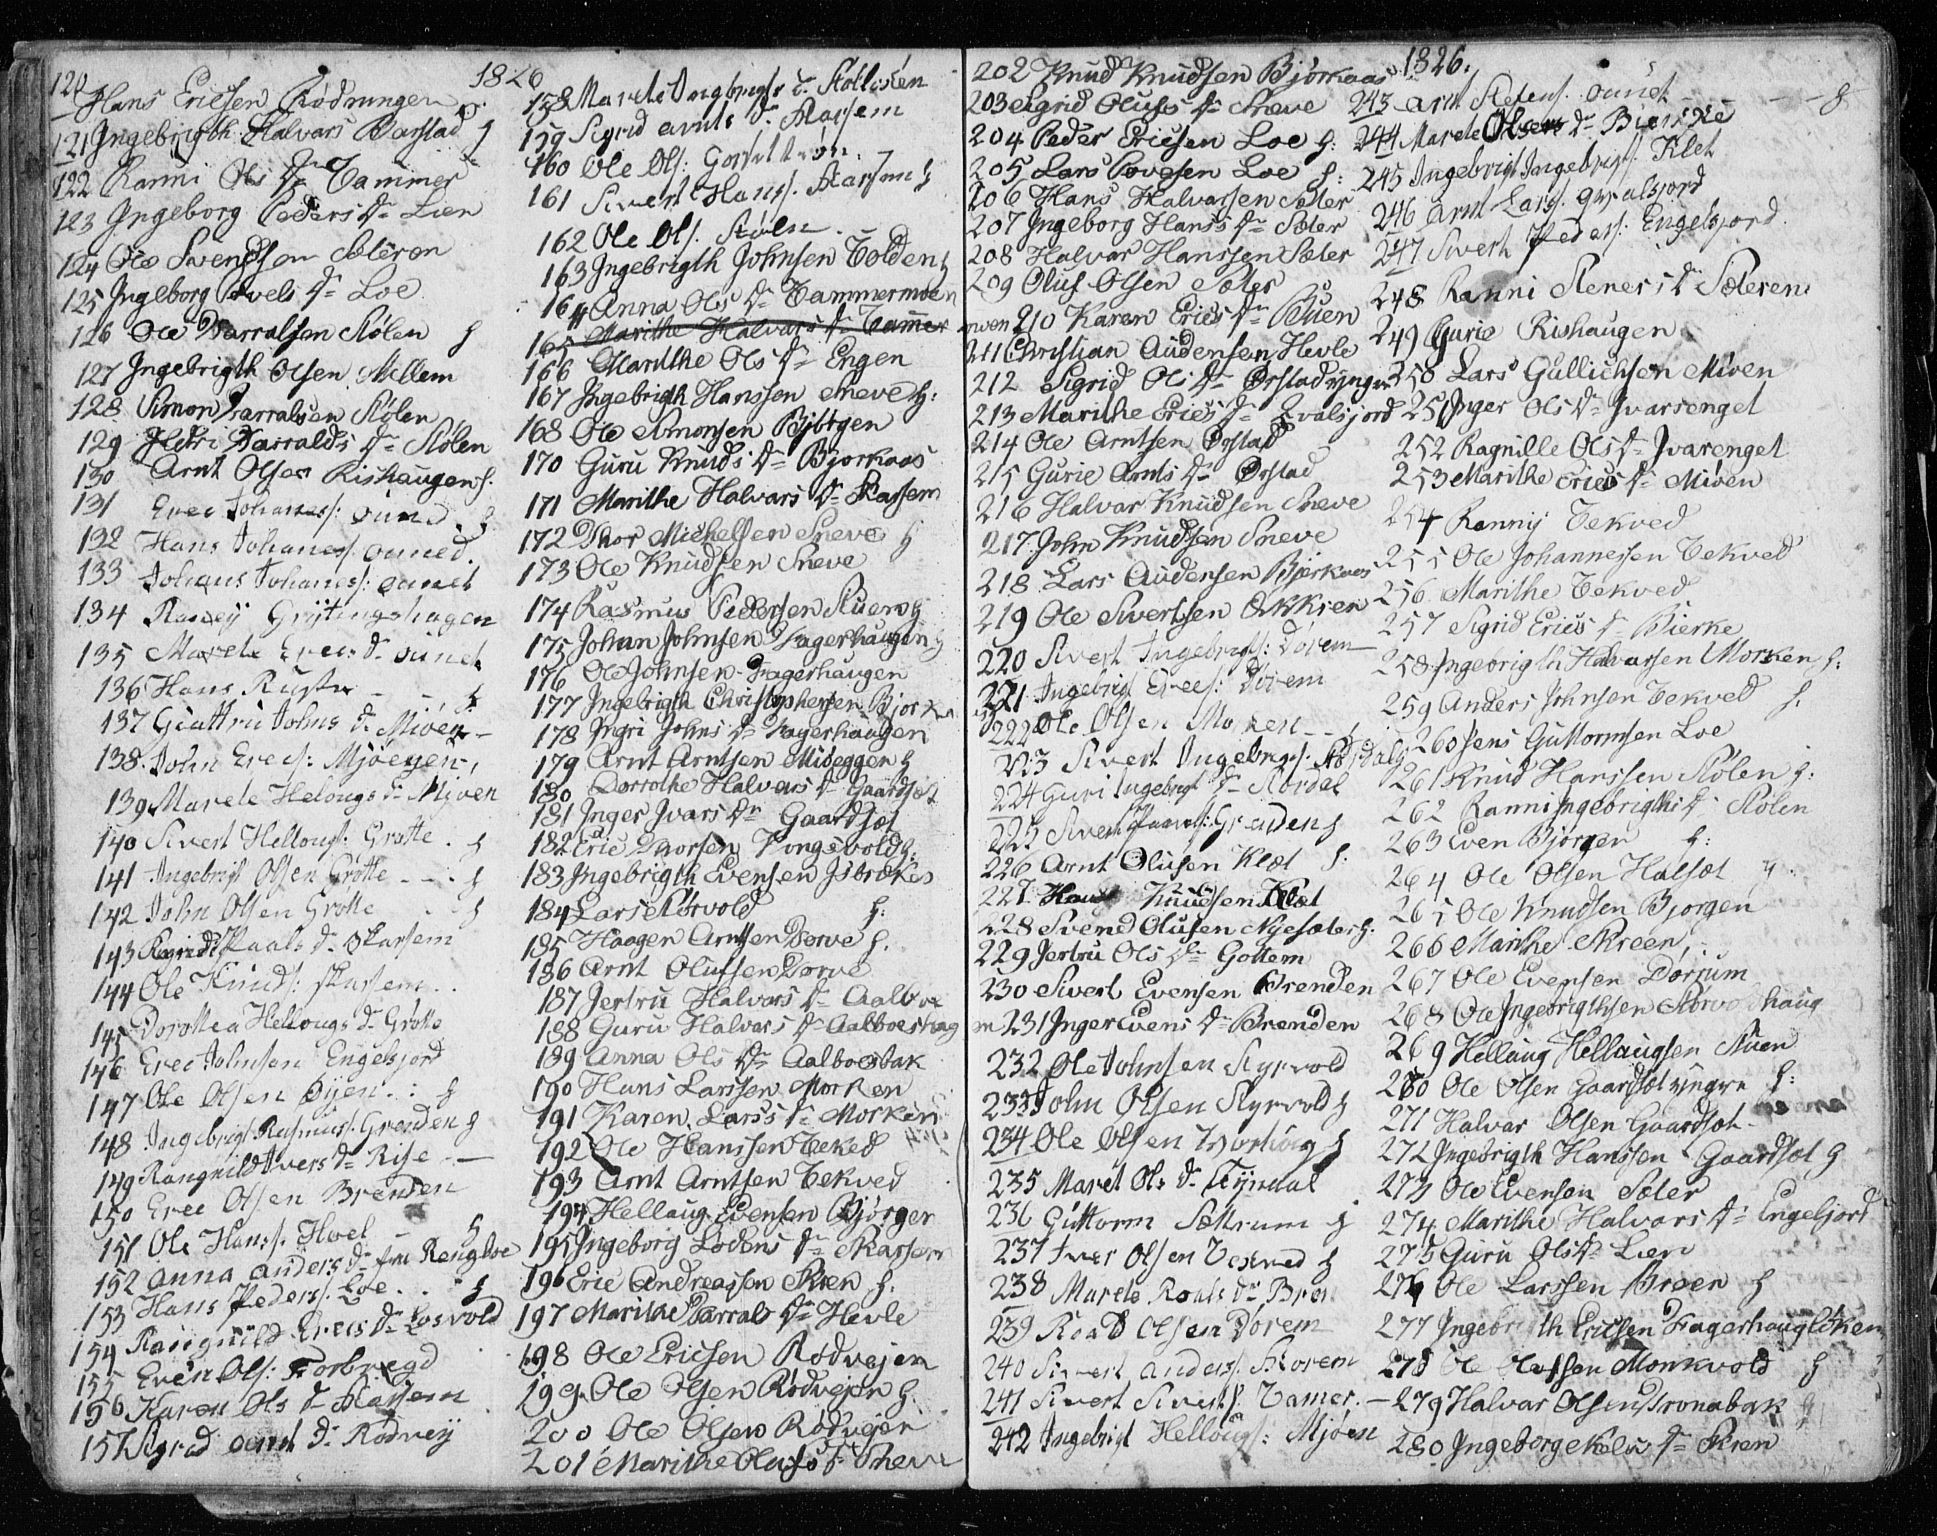 1826
120 Hans Ericsen Rødningen
121 Ingebrigth Halvars Barstad
122 Ranni Ols Dr Tammer
123 Ingeborg Peders Dr Lien
124 Ole Svendsen Sæteren
125 Ingeborg Povels Dr Loe
126 Ole Harralsen Stølen H
127 Ingebrigth Olsen Mellem
128 Simon Harralsen Stølen
129 Harralds Dr Stølen
130 Arnt Olsen Rishaugen H.
131 Erec Johanes: ouned
132 Hans Johanes: ouned
133 Johans Johanes: ounet
134 Grytingshagen
135 Marete Erecs Dr ounet
136 Hans
137 Giøttru Johns Dr Miøen
138 John Erecs: Mjøeyen
139 Marete Helougs Dr Mjøen
140 Sivert Hellougs: Grøtte
141 Ingebrigt Olsen Grøtte
142 John Olsen Grøtte
143 Paals Dr Skarsem
144 Ole Knuds: Skarsem
145 Dorottea Hellougs Dr Grøtte
146 Erec Johnsen Engelsjord
147 Ole Olsen Øijen
148 Ingebrigt Rasmus: Grenden
149 Rangnild Ivers Dr Rise
150 Erec Olsen Brenden
151 Ole Hans: Hoel
152 Anna Anders Dr
153 Hans Peders: Loe
154 Rangnild Erecs Dr Losvold
155 Even Ols: Forbregd
156 Karen Ols Dr Skarsem
157 Sigrid Dr Rødvey
158 Marete Ingbrigts Dr
159 Sigrid arnts Dr Skarsem
160 Ole Ols:
161 Sivert Hans: Skarsem
162 Ole Ols. Stølen
163 Ingebrigth Johnsen Volden
164 Anna Ols Dr Tammermoen
165 Marithe Halvars Dr Tammer
166 Marithe Ols Dr Engen
167 Ingebrigth Hanssen Sneve H:
168 Ole Simonsen Bjørgen
170 Guru Knuds Dr Bjørkaas
171 Marithe Halvars Dr Skarsem
172 Thor Michelsen Sneve H
173 Ole Knudsen Sneve
174 Rasmus Pedersen Stuen
175 Johan Johnsen Fagerhaugen
176 Ole Johnsen Fagerhaugen
177 Ingebrigth Christophersen
178 Ingri Johns Dr Fagerhaugen
179 Arnt Arntsen Mideggen
180 Dorrothe Halvars Dr Gaardsæt
181 Inger Ivars Dr Gaardsæt
182 Eric Thorsen Vongsvold
183 Ingebrigth Evensen
184 Lars Størvold H:
185 Haagen Arntsen Dørve H.
186 Arnt Olufsen Dørve
187 Jertru Halvors Dr Aalboe
188 Guru Halvars Dr Aalboeshag
189 Anna Ols Dr Aalboesbak
190 Hans Larssen Morken
191 Karen Lars's Dr Morken
192 Ole Hanssen Tekved
193 Arnt Arntsen Tekved
194 Hellaug Evensen Bjørgen
195 Ingeborg Lodens Dr Skarsem
196 Eric Andreassen Kren H.
197 Marithe Harrals Dr Hevle
198 Ole Ericsen Rødvejen
199 Ole Olsen Rødvejen H
200 Ole Olsen Rødvejen
201 Marithe Olufs Dr Sneve
1826.
202 Knud Knudsen Bjørkaas
203 Sigrid Olufs Dr Sneve
204 Peder Ericsen Loe H:
205 Lars Povelsen Loe H:
206 Hans Halvarsen Sæter
207 Ingeborg Hans's Dr Sæter
208 Halvar Hanssen Sæter
209 Oluf Olsen Sæter
210 Karen Erics Dr Buen
211 Christian Audensen Hevle
212 Sigrid Ols Dr Ørstad yngre
213 Marithe Erics Dr Qvalsjord
214 Ole Arntsen Ørstad
215 Gurie Arnts Dr Ørstad
216 Halvor Knudsen Sneve
217 John Knudsen Sneve
218 Lars Audensen Bjørkaas
219 Ole Sivertsen
220 Sivert Ingebrigts: Dørem
221 Ingebrigt Erecs: Dørem
222 Ole Olsen Morken
223 Sivert Ingebrigs:
224 Guri Ingebrigt Dr Nordal
225 Grenden
226 Arnt Olufsen Klæt H:
227 Knudsen Klæt
228 Svend Olufsen Nyesæter H:
229 Jertru Ols Dr Gottem
230 Sivert Evensen Brenden
231 Inger Evens Dr Brenden
232 Ole Johnsen Styrvold
233 John Olsen Styrvold
234 Ole Olsen
235 Maret Ols Dr
236 Guttorm Sættrum
237 Iver Olsen Tekved
238 Marete Roals Dr
239 Roald Olsen Dørem
240 Sivert anders:
241 Sivert Siverts: Tamer.
242 Ingebrigt Hellougs: Mjøen
243 Arnt Stefens. ounet 8
244 Marete Olsen Dr Bierke
245 Ingebrigt Ingebrigts: Klet
246 Arnt Lars: qvalsjord
247 Sivert Peders: Engelsjord
248 Ranni Steners Dr Sæteren
249 Gurie Rishaugen
250 Lars Gullichsen Miøen
251 Inger Ols Dr Ivarsenget
252 Ragnille Ols Dr Ivarenget
253 Marithe Erics Dr Miøen
254 Ranniy Tekved
255 Ole Johannessen Tekved
256 Marithe Tekved
257 Sigrid Erics Dr Bierke
258 Ingebrigth Halvarsen Morken H:
259 Anders Johnsen Tekved H.
260 Jens Guttormsen Loe
261 Knud Hanssen Stølen H:
262 Ranni Ingebrigths Dr Stølen
263 Even Bjørgen H:
264 Ole Olsen Halsæt
265 Ole Knudsen Bjørgen
266 Marithe Skreen
267 Ole Evensen Dørjum
268 Ole Ingebrigthsen Størvoldhaug
269 Hellaug Hellaugsen Stuen
260 Ole Olsen Gaardsæt yngre H:
271 Halvar Olsen Gaardsæt
272 Ingebrigth Hanssen Gaardsæt
273 Ole Evensen Sæter
274 Marithe Halvars Dr Engelsjord
275 Guru Ols Dr Lien
276 Ole Larssen Broen H
277 Ingebrigth Ericsen Fagerhaugløken
278 Ole Olufsen Monkvold H
279 Halvar Olsen
280 Ingeborg Dr Kren